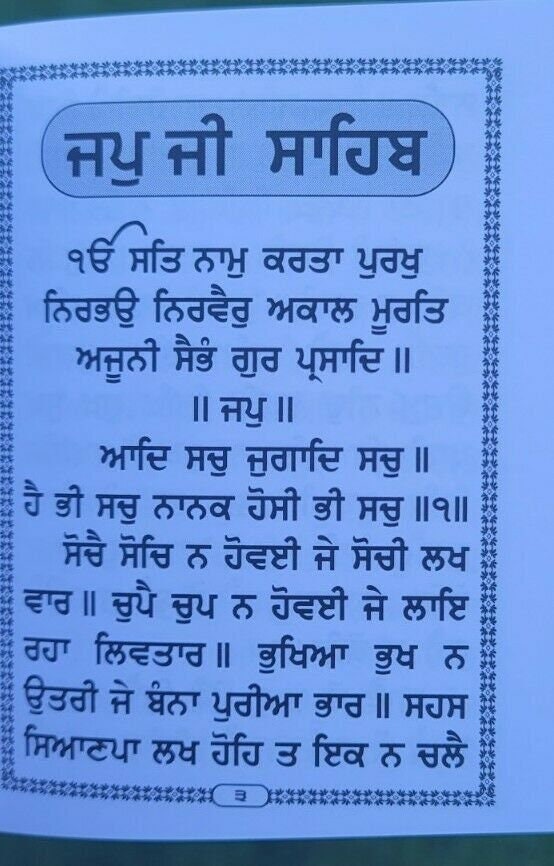 ਜਪੁ ਜੀ ਸਾਹਿਬ
ੴ ਸਤਿ ਨਾਮੁ ਕਰਤਾ ਪੁਰਖੁ
ਨਿਰਭਉ ਨਿਰਵੈਰੁ ਅਕਾਲ ਮੂਰਤਿ
ਅਜੂਨੀ ਸੈਭੰ ਗੁਰ ਪ੍ਰਸਾਦਿ ॥
॥ ਜਪੁ ॥
ਆਦਿ ਸਚੁ ਜੁਗਾਦਿ ਸਚੁ ॥
ਹੈ ਭੀ ਸਚੁ ਨਾਨਕ ਹੋਸੀ ਭੀ ਸਚੁ ॥੧॥
ਸੋਚੈ ਸੋਚਿ ਨ ਹੋਵਈ ਜੇ ਸੋਚੀ ਲਖ
ਵਾਰ ॥ ਚੁਪੈ ਚੁਪ ਨ ਹੋਵਈ ਜੇ ਲਾਇ
ਰਹਾ ਲਿਵਤਾਰ ॥ ਭੁਖਿਆ ਭੁਖ ਨ
ਉਤਰੀ ਜੇ ਬੰਨਾ ਪੁਰੀਆ ਭਾਰ ॥ ਸਹਸ
ਸਿਆਣਪਾ ਲਖ ਹੋਹਿ ਤ ਇਕ ਨ ਚਲੈ
੩